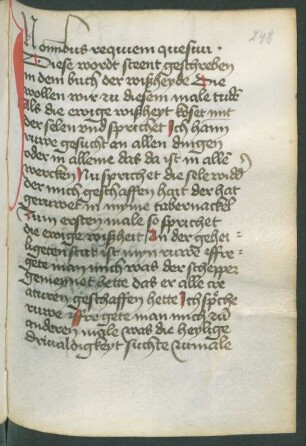 248
In omnibus requiem quesiui.
Diese wordt steent geschreben
in dem buch der wißheyde Die
wollen wir zu diesem male
als die ewige wißheyt koset mit
der selen vnd sprichet Ich hann
ruwe gesucht an allen dingen
oder in alleme das da ist in allen
wercken Nu sprichet die sele widder
der mich geschaffen hait der hat
geruwet in myme tabernackel
Zum ersten male so sprichet
die ewige wißheit In der gehei-
ligetenstad ist myn ruwe
gete man mich was der schepper
gemeynet hette das er alle cre
aturen geschaffen hette Ich spreche
ruwe gete man mich zu
anderen male was die heylige
driualdigkeyt suchte zumale